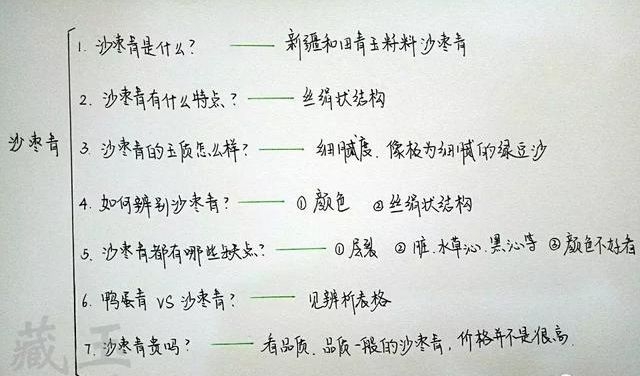 沙枣青
1. 沙枣青是什么? —— 新疆和田青玉籽料沙枣青
2. 沙枣青有什么特点? —— 丝绢状结构
3. 沙枣青的玉质怎么样? —— 细腻度.像极为细腻的绿豆沙
4. 如何辨别沙枣青? —— ①颜色 ②丝绢状结构
5. 沙枣青都有哪些缺点? —— ①层裂 ②脏.水草沁.黑沁等 ③颜色不好看
6. 鸭蛋青 VS 沙枣青? —— 见辨析表格
7. 沙枣青贵吗? —— 看品质.品质一般的沙枣青,价格并不是很高.
藏玉